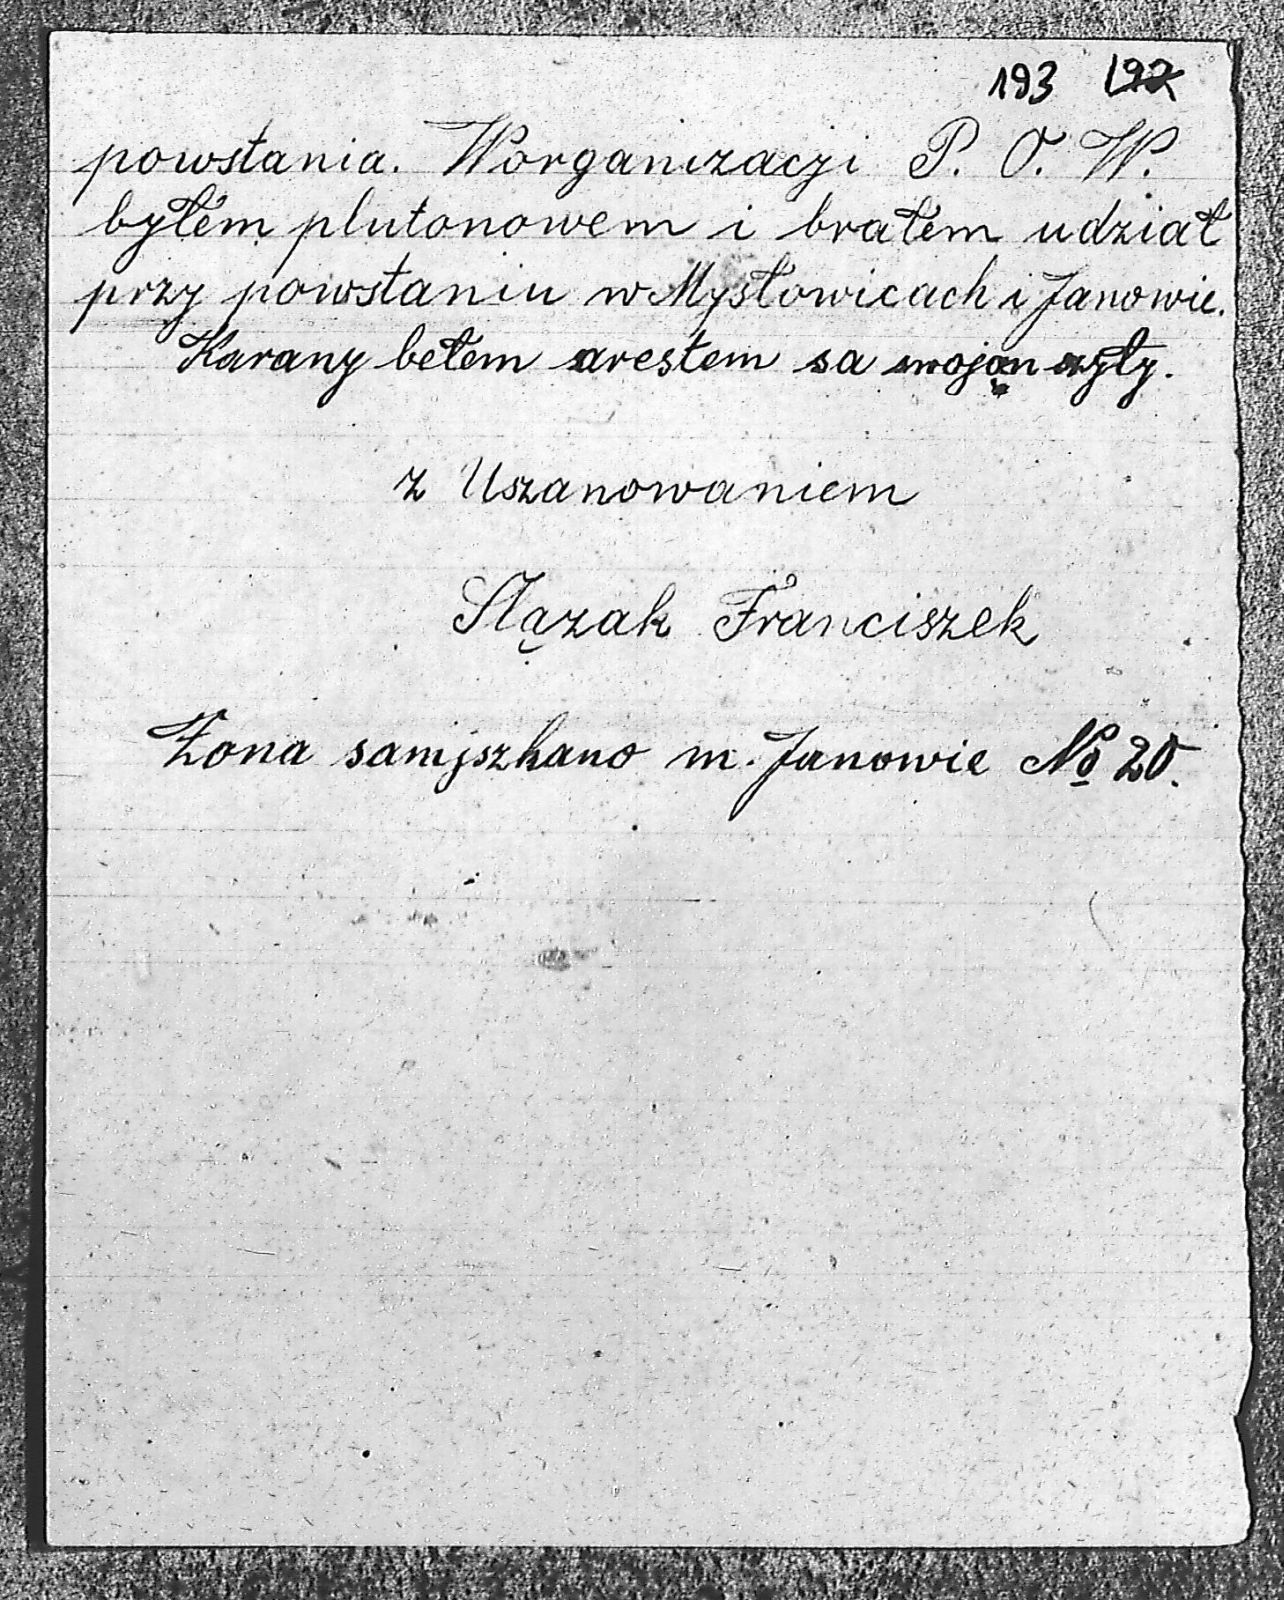 193 192
powstania. Worganizacji P. O. W.
byłem plutonowem i brałem udział
przy powstaniu w Mysłowicach i Janowie.
Karany bełem arestem sa
z Uszanowaniem
Ślązak Franciszek
Żona samjszkano m. Janowie № 20.